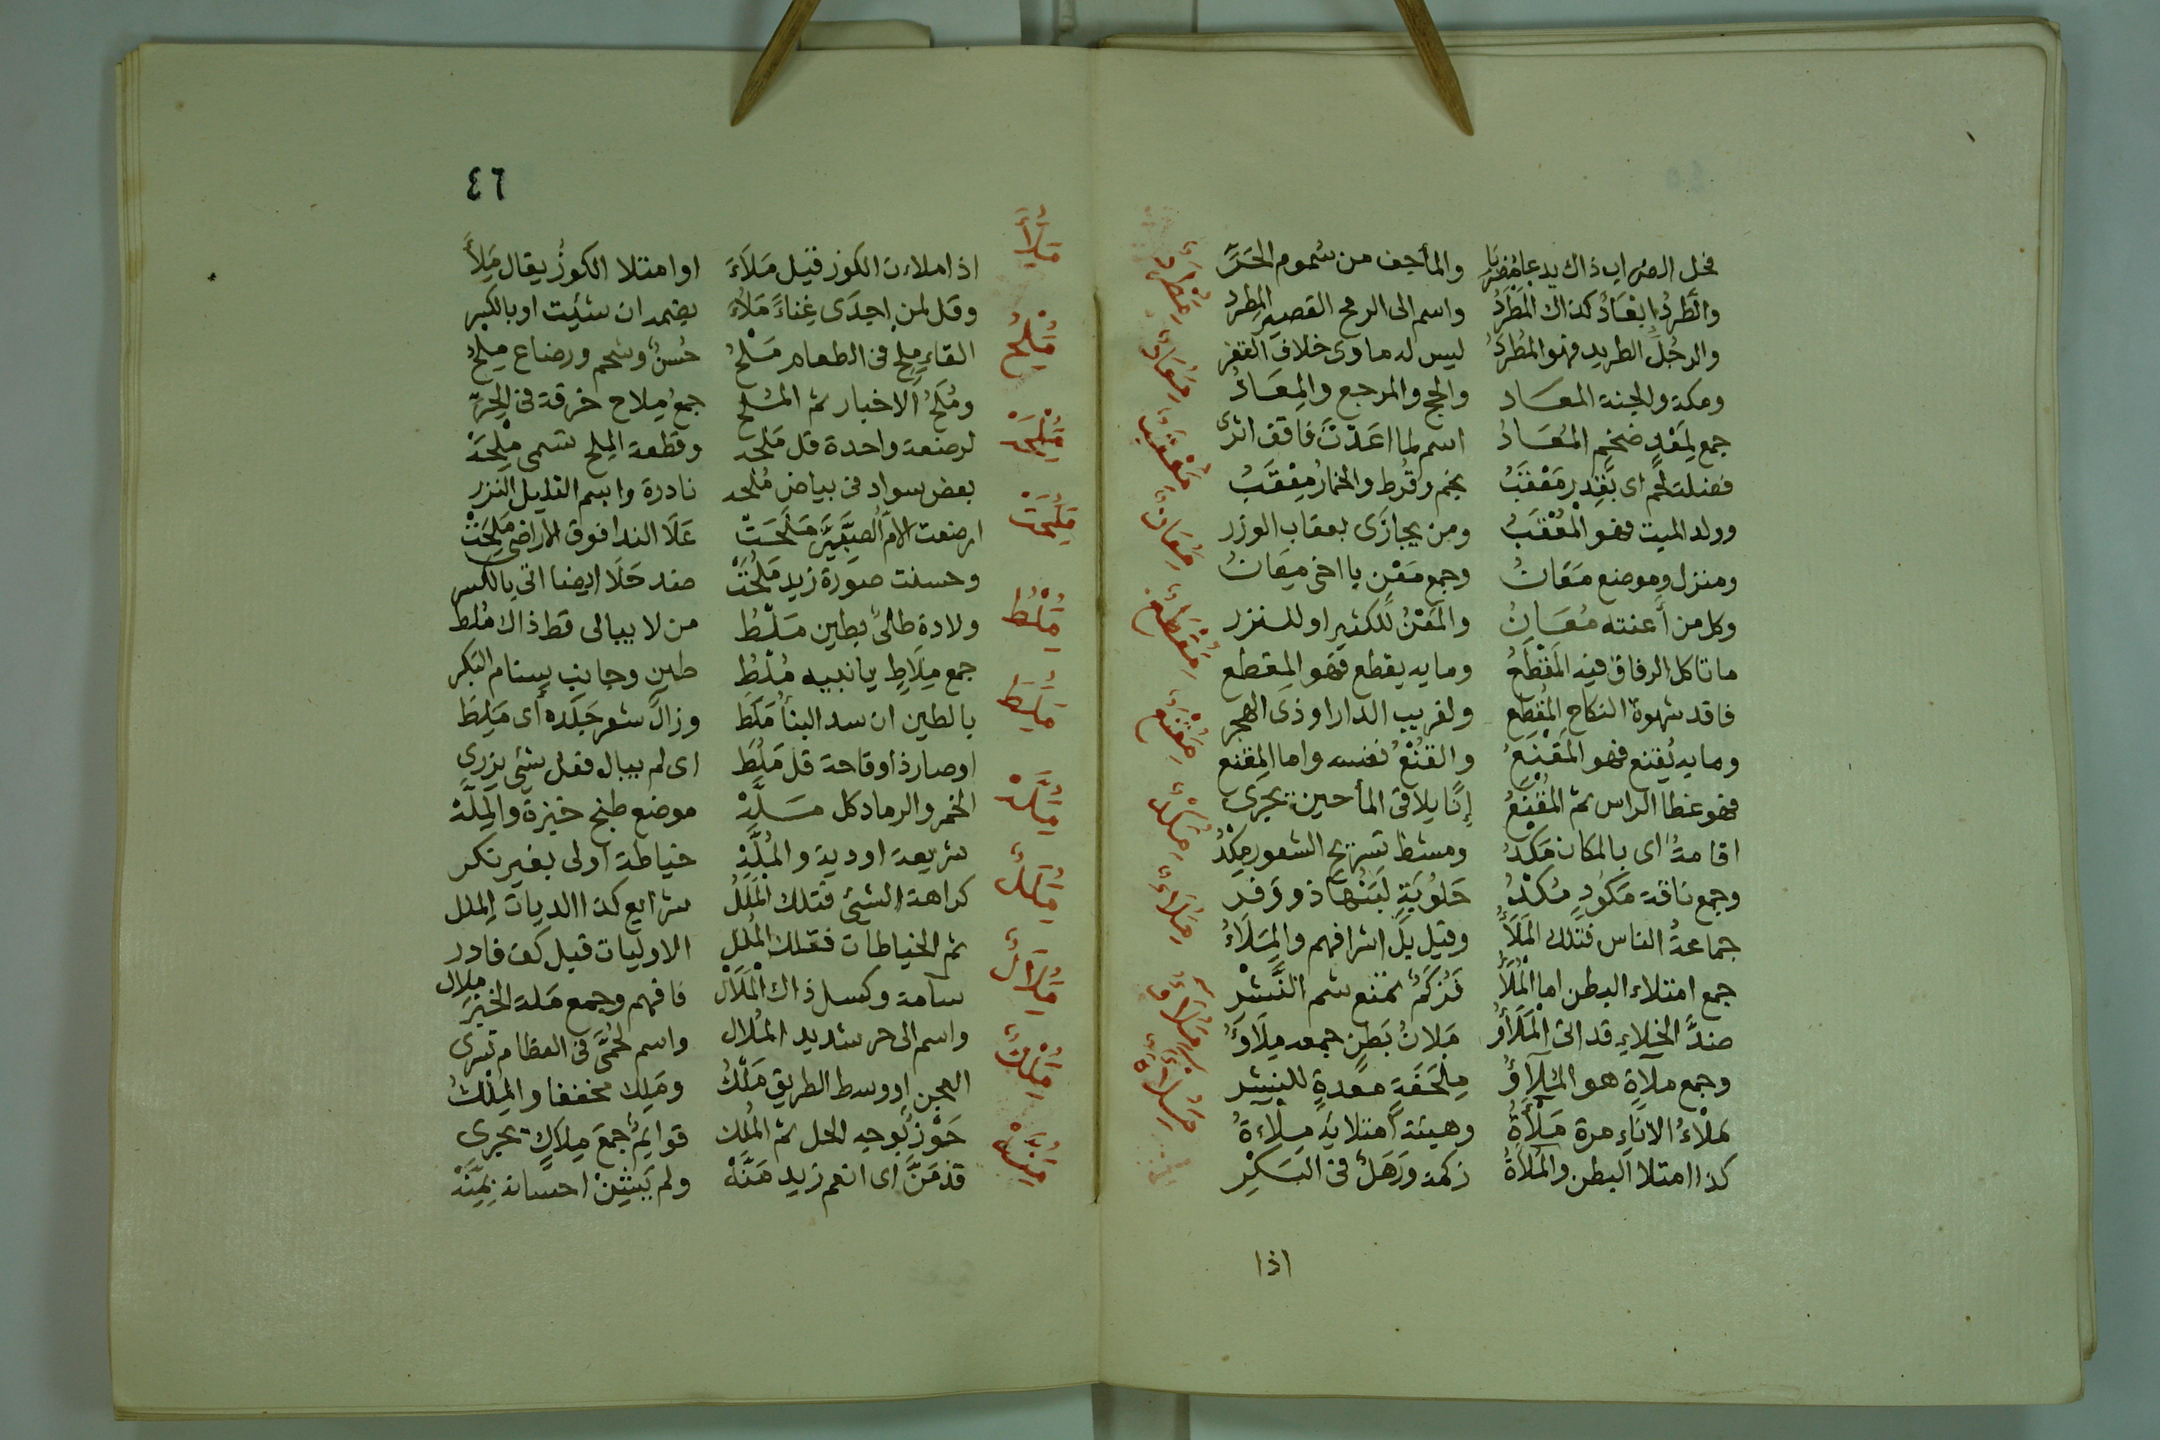 فحل الضراب ذاك يدعا مضربا والمأجف من سموم الحَرِّ
والطَّرْدُ ابْعَادٌ كذاك المَطْرَدُ واسم الى الرمح القصير المِطْرد
والرجُلُ الطريد فهو المُطْرَدُ ليس له مأوى خلاف القفر
ومكة والجنة المعَاد والحج والمرجع والمِعَادُ
جمع لِمَعْدٍ ضخم المُعَادُ اسم لما اعَدْتَ فاقف اثرى
فضلة لحم اى بقدر مَعْقَبُ نجم وقُرط والخمارُ مِعْقَبُ
وولد الميت فهو المُعْقَبُ ومن يجازَى بعقاب الوزر
ومنزل وموضع مَعَانُ وجمع مَعْنٍ يا اخى مِعَانُ
وكل من أعنته مُعَانُ والمَعْنُ للكثير او للنزر
ما تاكل الرفاق فيه المَقْطَعُ وما به يقطع فهو المِقطع
فاقد شهوة النكاح المُقْطع ولغريب الدار او ذى الهجر
وما به يُقنع فهو المَقْنَعُ والقُنْعُ نفسه واما المِقنع
فهو غطا الراس ثم المُقْنِعُ إنًا يلاقى المأ حين يجرى
اقامةُ اى بالمكان مَكْدُ ومشط تسريح الشعور مِكْدُ
وجمع ناقة مَكُودٍ مُكْدُ حَلُوبَةٍ لَبَنُها ذو وَفْر
جماعةُ الناس فتلك المَلَأُ وقيل بل اشرافهم والمِلَاءُ
جمع امتلاء البطن اما المُلَأُ فزُكَمٌ تمنع شم النَّشْر
ضدُّ الخلاءِ قد اتى المَلَأوُ مَلانُ بَطن جمعه مِلَاوُ
وجمع ملاة هو المُلَاؤُ مِلحَفَة معَدةٍ للنشر
لملْاءُ الاناءِ مرة مَلْأةُ وهيئة امتلايه مِلاءةُ
كذا امتلا البطن والمُلاَةُ زكمة ورَهَل فى السَكرِ
اذا
مِطْرد
مَعَاد
مَعْقَب
مَعَان
مَقْطَع
مَقْنَع
مَكْد
مَلَاء
٤٦
اذا ملاءت الكوز قيل مَلَأَ او امتلا الكوزُ يقال مَلِأَ
وقل لمن اجدَى غِناءً مَلُأَ يضمه ان شئيت او بالكَسر
القاءِ مِلح فى الطعام مَلْحُ حُسنٌ وشحم ورضاع مِلحُ
ومُلَحُ الاخبار ثم المُلحُ جمعُ مِلاح خرقة فى الحِرِّ
لرضعة واحدة قل مَلْحَه وقطعة المِلح تسمى مِلْحَهْ
بعض سواد فى بياض مُلْحَه نادرة واسم القليل النزر
ارضعت الامُ الصَّبِيَّ مَلَحَتْ عَلَا الندا فوق الاراضى مَلِحَتْ
وحسنت صورة زيد مَلُحَتْ ضد حَلَا ايضا اتى بالكسر
ولادة طالىٌ بطين مَلْطُ من لا يبالى قط ذاك مِلط
جمع مِلَاطٍ يا نبيه مُلْطُ طين وجانب سنام البَكر
بالطين ان سد البنأ مَلَطَ وزال شعر جلده اى مَلِطَ
او صار ذا وقاحة قل مَلُطَ اى لم يبال فعل شئ يزرى
الخمر والرماد كل مَلَّهْ موضع طبخ خبزة والمِلَّهْ
شريعة او دية والمُلَّهْ خياطة أولى بغير نكر
كراهة الشئ فتلك المَلَلُ شرايع كذا الديات المِلل
ثم الخياطات فتلك المُلَل الاوليات قيل كف فادر
سآمة وكسل ذاك المَلَال فافهم وجمع مَلة الخبز مِلال
واسم الى حر شديد المُلال واسم لحُمَّى فى العظام تسرى
العجن او وسط الطريق مَلْكُ ومَلِك مخففا والمِلكُ
حَوْز بُوجه الحل ثم المُلك قوايمٌ جمعَ مِلَاكٍ يجرى
قد مَنَّ اى انعم زيد مَنَّهْ ولم يَشِنْ احسانه بِمِنَّهْ
مَلَأ
مَلْح
مَلْحَه
مَلَحَت
مَلْط
مَلَط
مَلَّه
مَلَل
مَلَال
مَلْك
مَنَّه